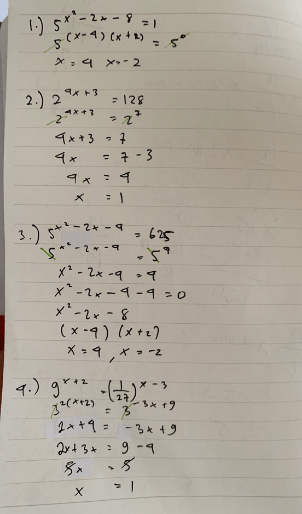 1.) 5^(x² - 2x - 8) = 1
5^((x-4)(x+2)) = 5⁰
x = 4 x = -2
2.) 2^(4x+3) = 128
2^(4x+3) = 2⁷
4x+3 = 7
4x = 7 - 3
4x = 4
x = 1
3.) 5^(x² - 2x - 4) = 625
5^(x² - 2x - 4) = 5⁴
x² - 2x - 4 = 4
x² - 2x - 4 - 4 = 0
x² - 2x - 8
(x-4) (x+2)
x = 4, x = -2
4.) 9^(x+2) = (1/27)^(x-3)
3^(2(x+2)) = 3^(-3x+9)
2x+4 = -3x+9
2x+3x = 9-4
5x = 5
x = 1